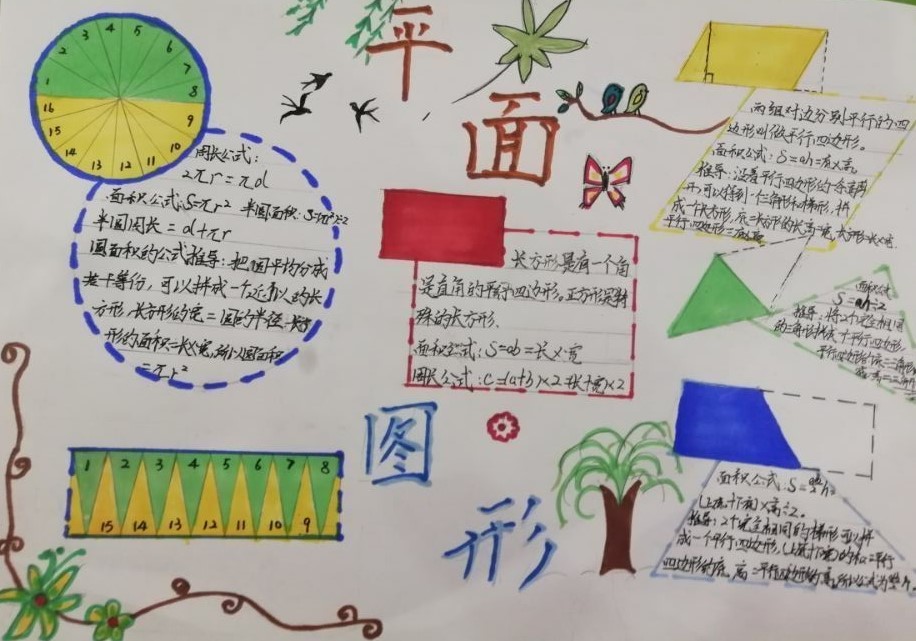 平
面
图
形
1
2
3
4
5
6
7
8
9
10
11
12
13
14
15
16
周长公式：
2πr=πd
面积公式:S=πr² 半圆面积:S=πr²÷2
半圆周长=d+πr
圆面积的公式推导：把圆平均分成
若干等份，可以拼成一个近似的长
方形，长方形的宽=圆的半径
形的面积=长×宽,所以圆面积
=πr²
1 2 3 4 5 6 7 8
15 14 13 12 11 10 9
长方形是有一个角
是直角的平行四边形，正方形是特
殊的长方形.
面积公式：S=ab=长×宽
周长公式：C=(a+b)×2 长+宽×2
两组对边分别平行的四
边形叫做平行四边形。
面积公式：S=ah=底×高
推导：沿着平行四边形的一条高剪
开，可以得到一个三角形和梯形，拼
成一个长方形，
平行四边形=底×高
面积公式
S=ah÷2
推导：将2个完全相同
的三角形拼成一个平行四边形，
平行四边形的底=三角形
面积公式：S=
(上底+下底)×高÷2。
推导：2个完全相同的梯形可以拼
成一个平行四边形，(上底+下底)的和=平行
四边形的底，高=平行四边形的高,所以公式为